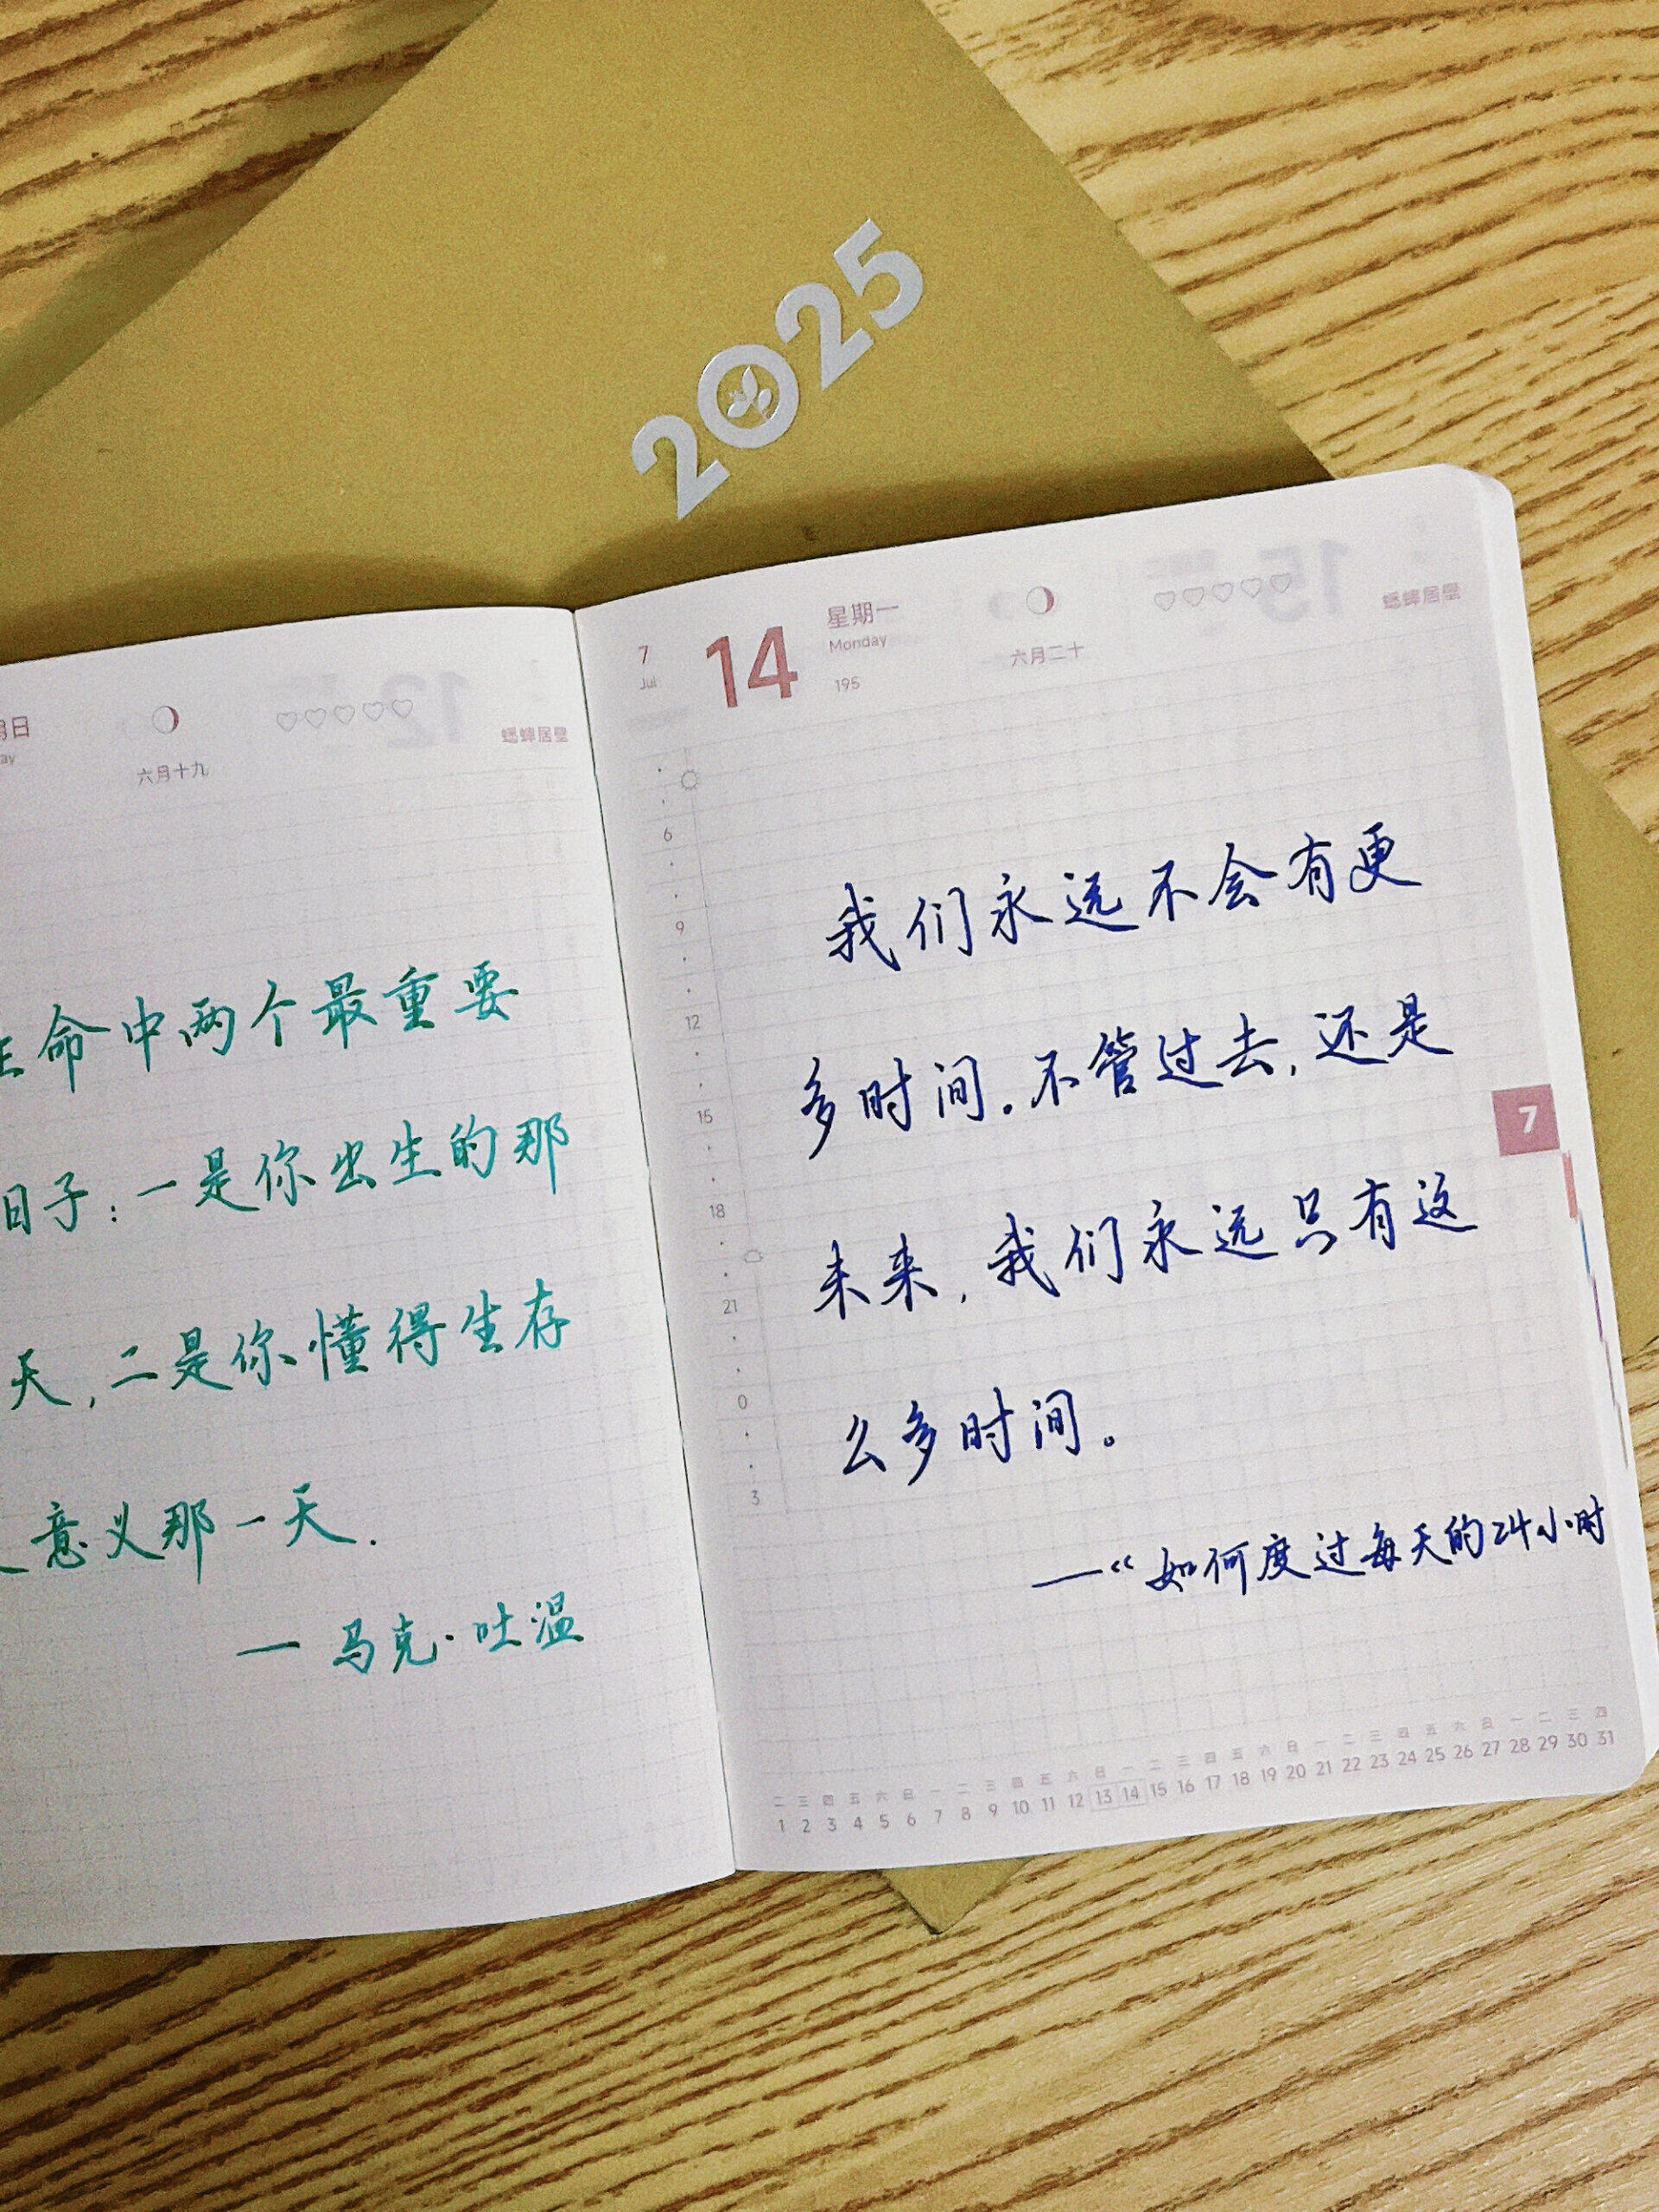 2025
月日
ay
六月十九
♡♡♡♡♡
蟋蟀居里
命中两个最重要
日子：一是你出生的那
天，二是你懂得生存
意义那一天.
— 马克·吐温
7
Jul
14
星期一
Monday
195
六月二十
♡♡♡♡♡
6
9
12
15
18
21
0
3
我们永远不会有更
多时间。不管过去，还是
未来，我们永远只有这
么多时间。
—“如何度过每天的24小时
7
二 三 四 五 六 日 一 二 三 四 五 六 日 一 二 三 四 五 六 日 一 二 三 四 五 六 日 一 二 三 四
1 2 3 4 5 6 7 8 9 10 11 12 13 14 15 16 17 18 19 20 21 22 23 24 25 26 27 28 29 30 31